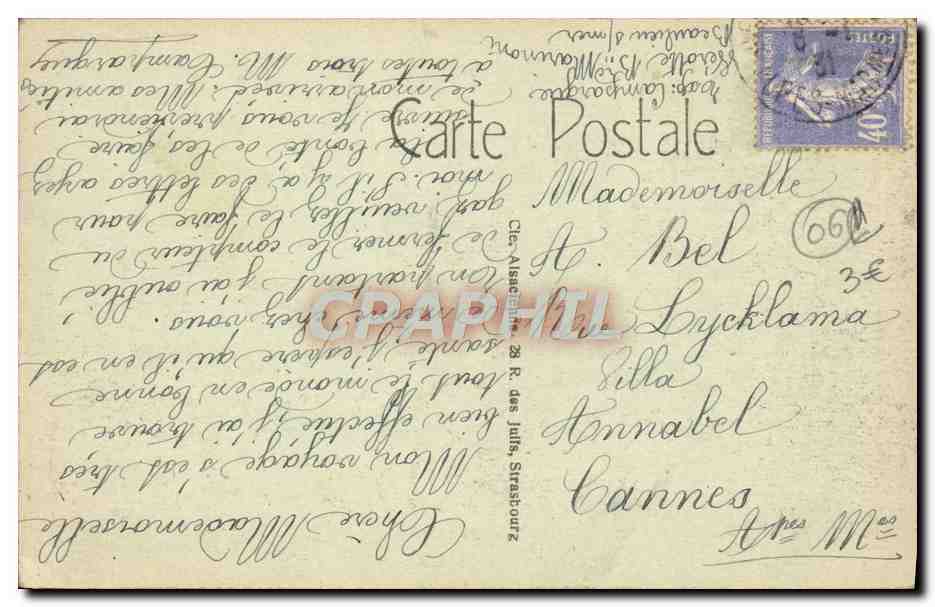 Carte Postale
Mademoiselle
A. Bel
Rue Lycklama
Villa
Annabel
Cannes
Alpes Mes
06
3€
Cie. Alsacienne. 28 R. des Juifs, Strasbourg
40
POSTES
Chère Mademoiselle
Mon voyage s'est très
bien effectué, j'ai trouvé
tout le monde en bonne
santé, j'espère qu'il en est
de même chez vous.
En partant j'ai oublié
de fermer le compteur du
gaz veuillez le faire pour
moi. S'il y a des lettres ayez
la bonté de les faire
suivre. Je vous préviendrai
de mon arrivée. Mes amitiés
à toutes trois M. Campargue
Exp: Campargue
Bd Marinoni
Beaulieu s/mer
CPAPHIL